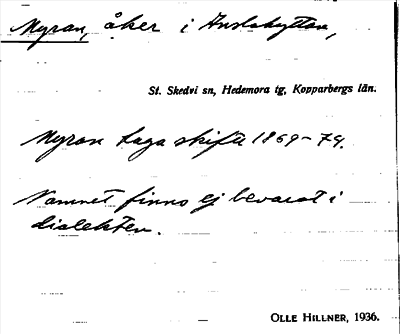 Myran, åker i Andshyttan,
St. Skedvi sn, Hedemora tg, Kopparbergs län.
Myran Laga skifte 1869-74.
Namnet finns ej bevarat i
dialekten.
OLLE HILLNER, 1936.